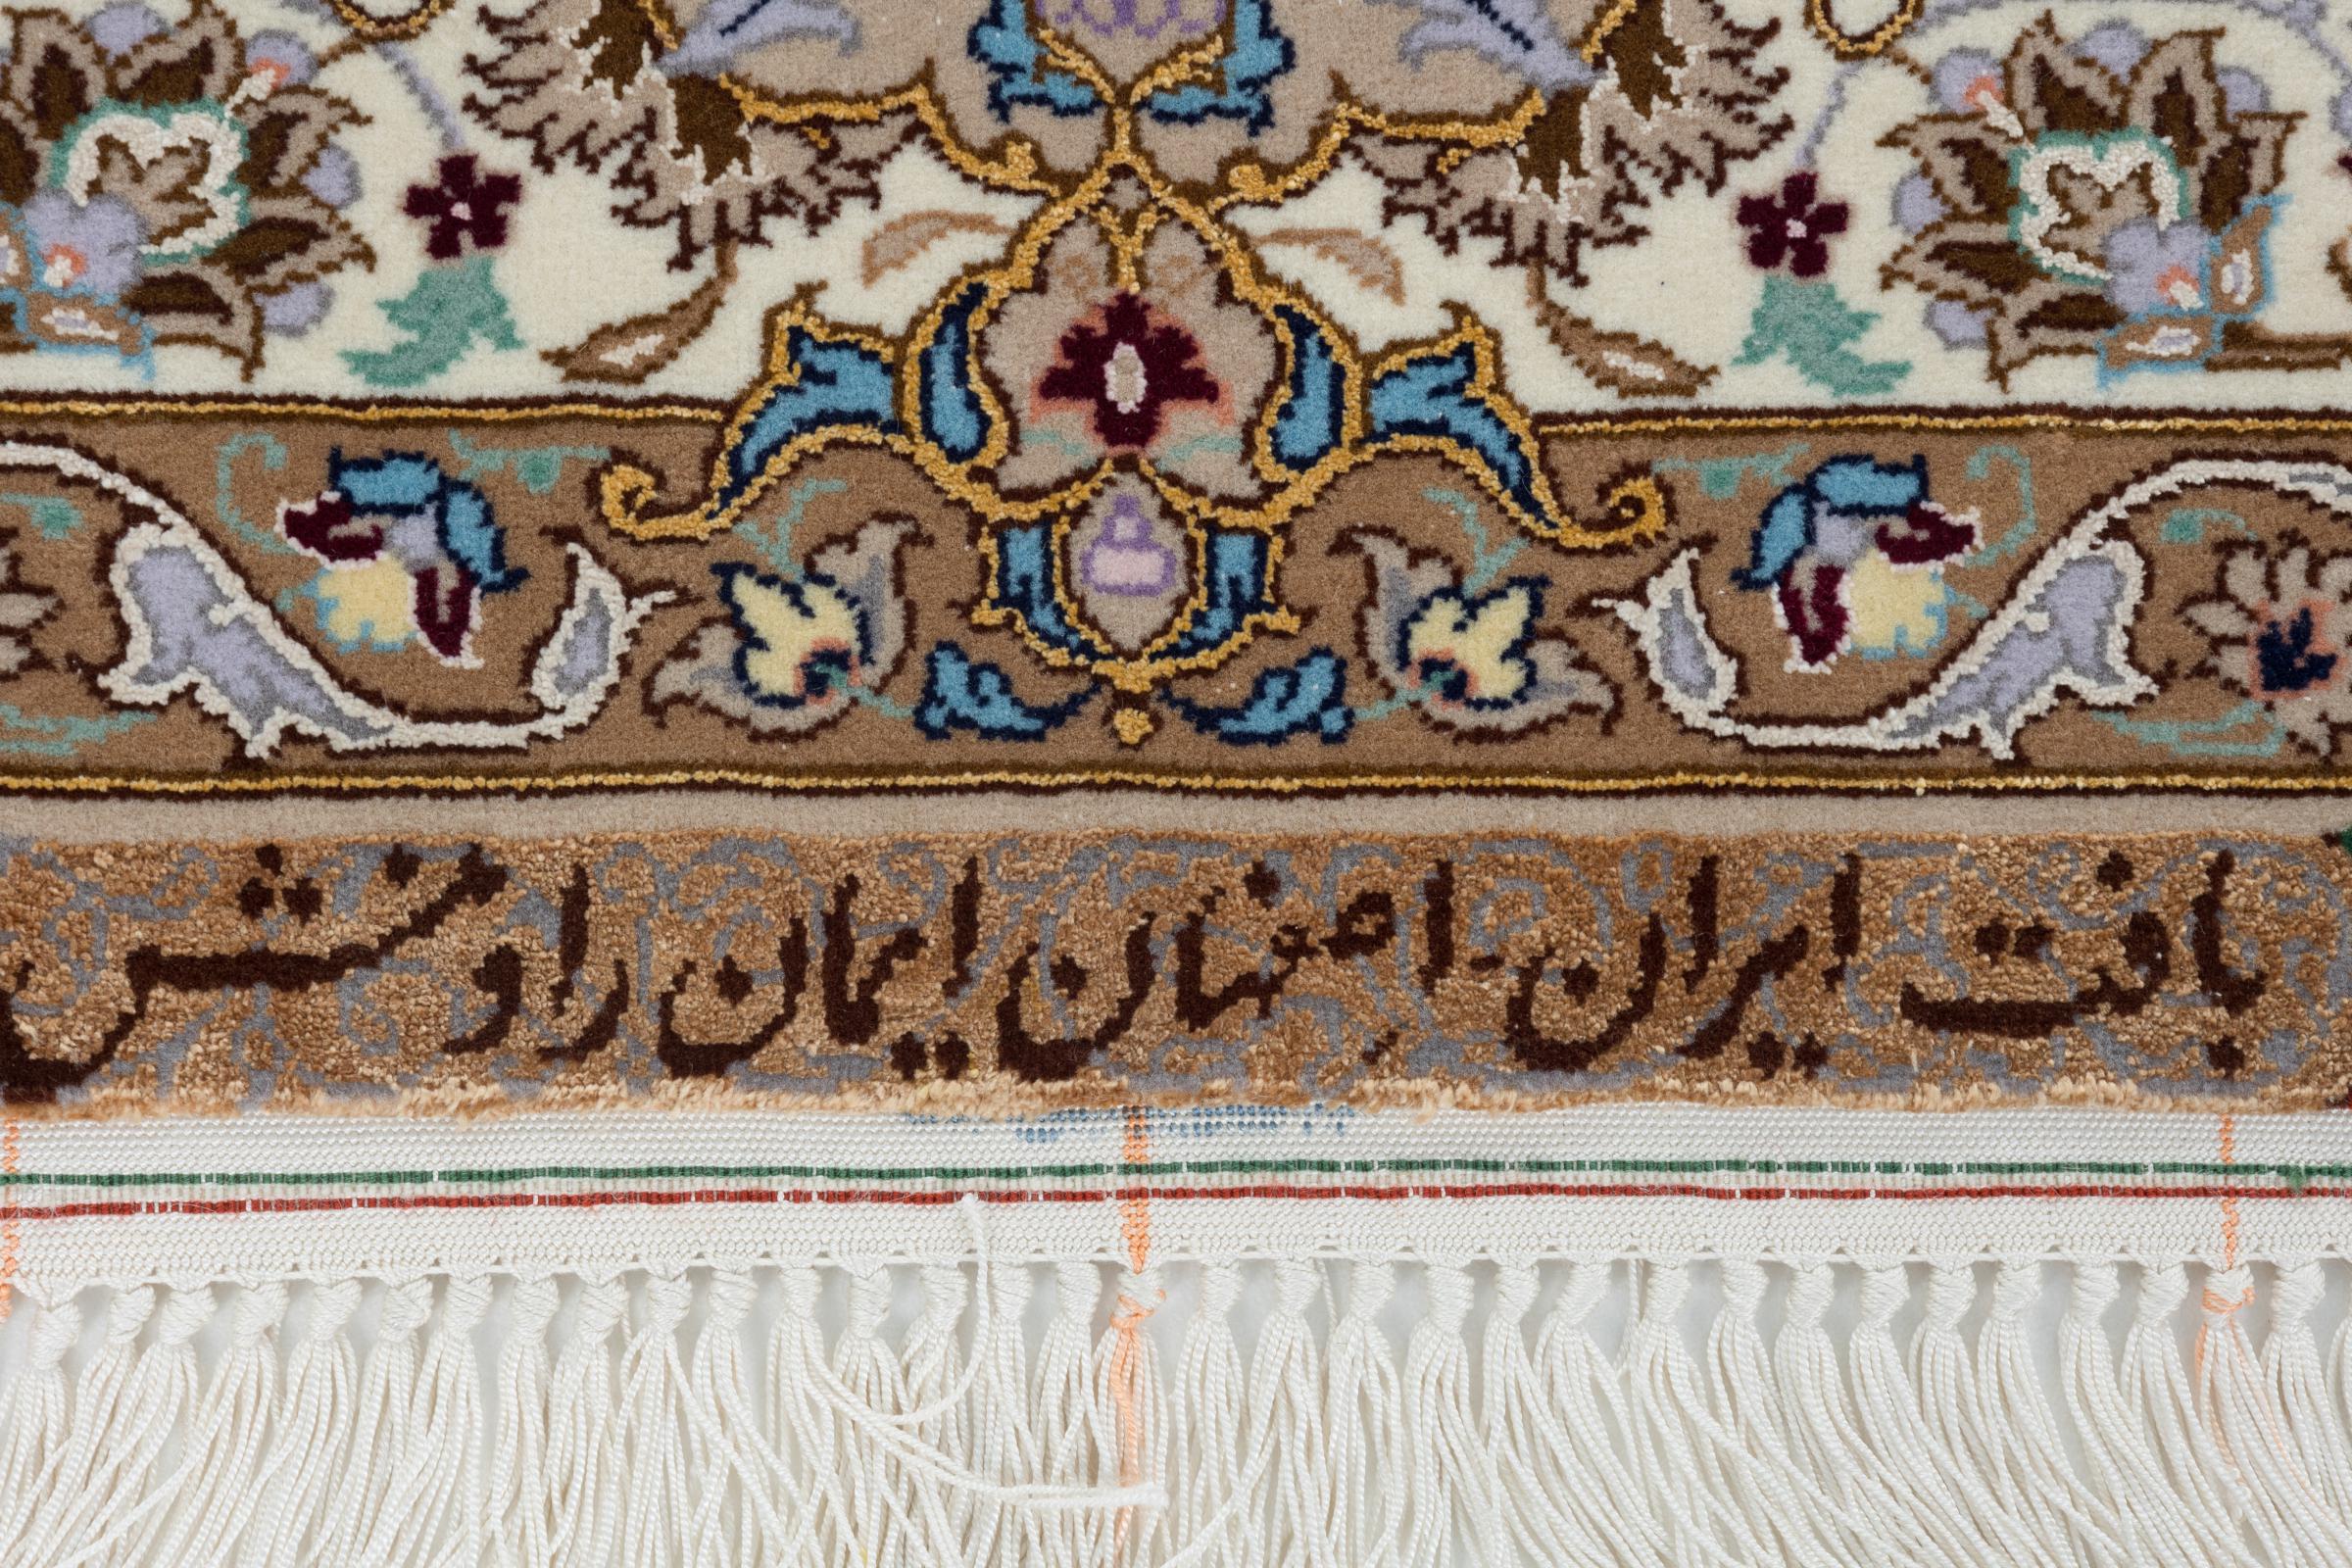 بافت ایران - اصفهان ایمان رادمنش